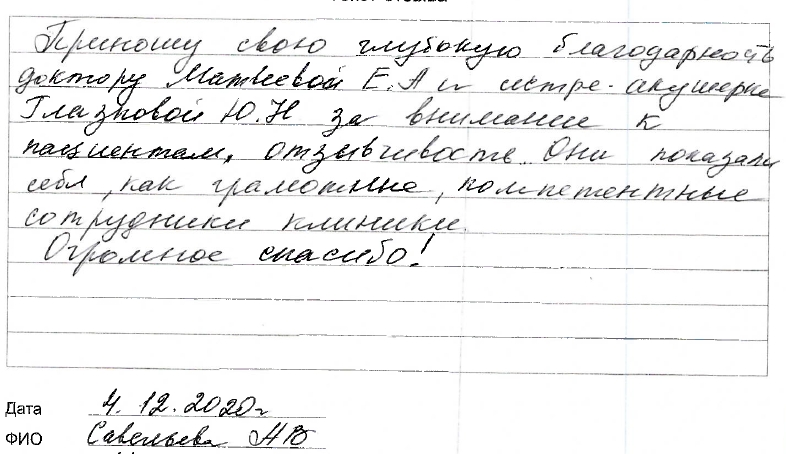 Приношу свою глубокую благодарность
доктору Матвеевой Е.А и сестре-акушерке
Глазковой Ю.Н за внимание к
пациентам, отзывчивость. Они показали
себя, как грамотные, компетентные
сотрудники клиники.
Огромное спасибо!
Дата 4.12.2020г
ФИО Савельева АВ